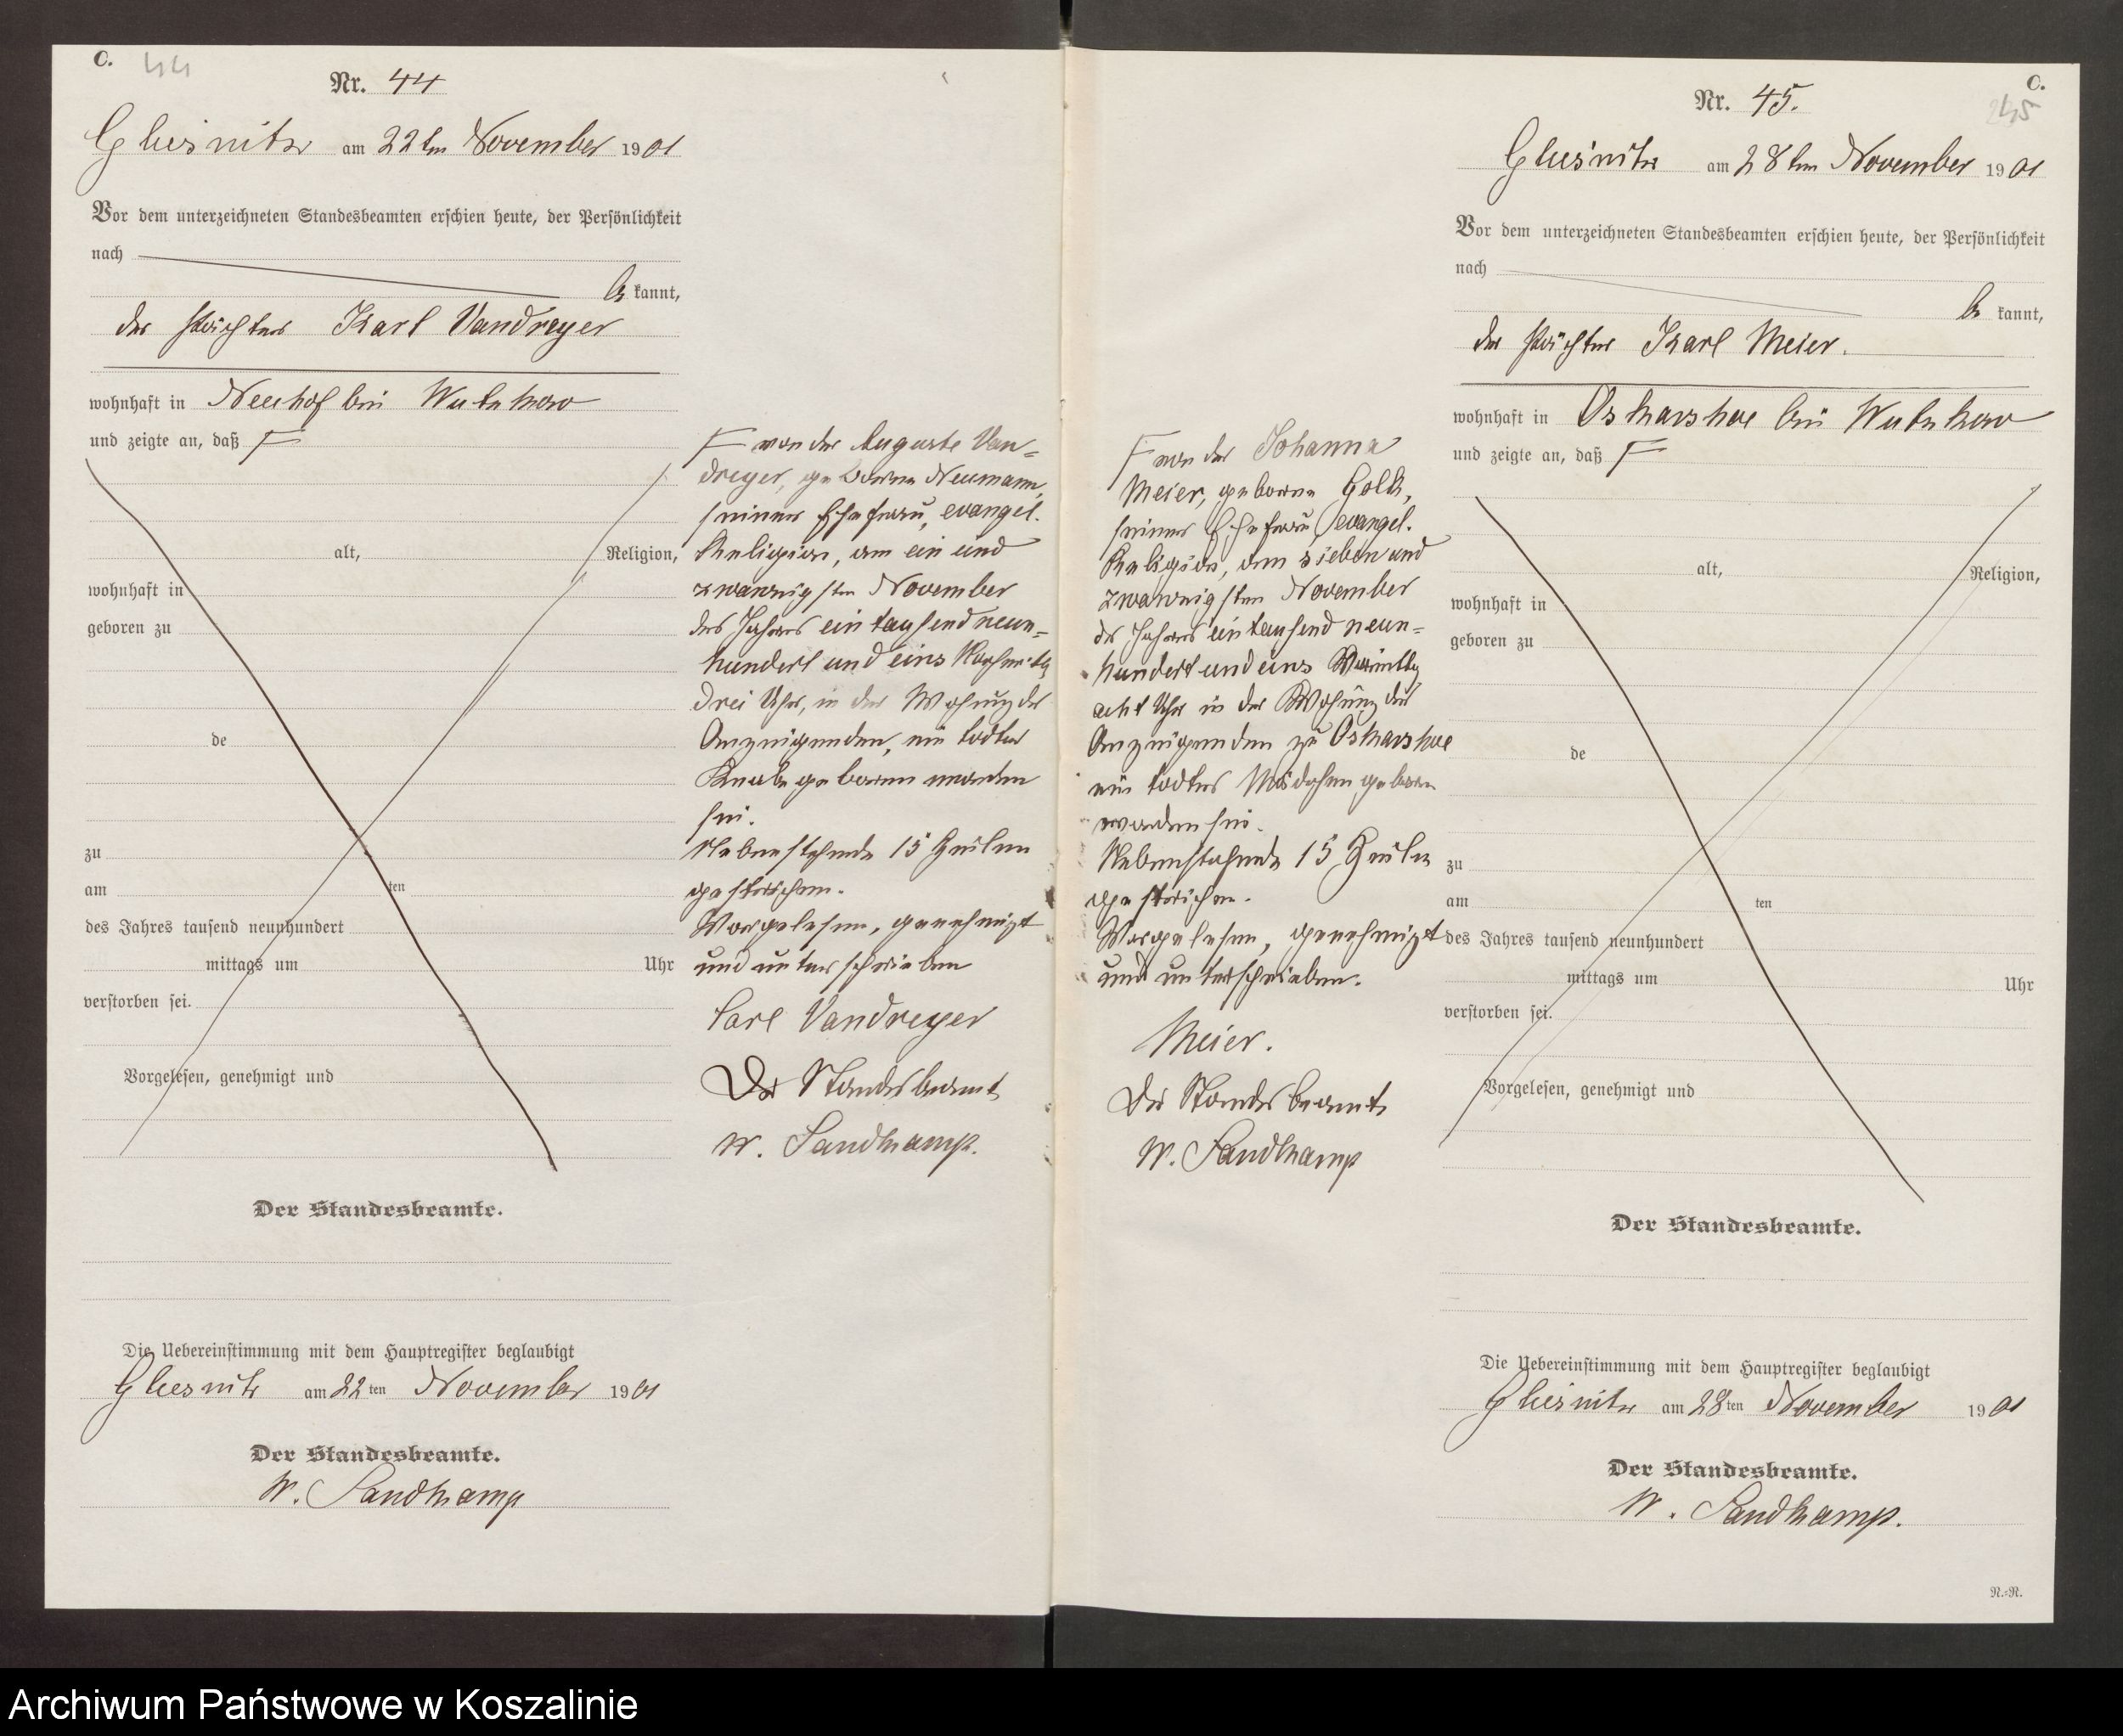 C. 44
Nr. 44
Gliesnitz am 22ten November 1901
Vor dem unterzeichneten Standesbeamten erschien heute, der Persönlichkeit
nach
be kannt,
der Pächter Karl Vandreyer
wohnhaft in Neuhof bei Wutzkow
und zeigte an, daß F
alt, Religion,
wohnhaft in
geboren zu
de
zu
am ten
des Jahres tausend neunhundert
mittags um Uhr
verstorben sei.
Vorgelesen, genehmigt und
Der Standesbeamte.
Die Uebereinstimmung mit dem Hauptregister beglaubigt
Gliesnitz am 22ten November 1901
Der Standesbeamte.
W. Sandkamp
F von der Auguste Van=
dreyer, geborene Neumann,
seiner Ehefrau, evangel.
Religion, am ein und
zwanzigsten November
des Jahres eintausend neun=
hundert und eins Nachmittg
drei Uhr, in der Wohnung des
Anzeigenden, ein todter
Knabe geboren worden
sei.
Nebenstehende 15 Zeilen
gestrichen.
Vorgelesen, genehmigt
und unterschrieben
Carl Vandreyer
Der Standesbeamte
W. Sandkamp.
C.
245
Nr. 45.
Gliesnitz am 28ten November 1901
Vor dem unterzeichneten Standesbeamten erschien heute, der Persönlichkeit
nach
be kannt,
der Pächter Karl Meier.
wohnhaft in Oskarshoe bei Wutzkow
und zeigte an, daß F
F von der Johanna
Meier, geborne
seiner Ehefrau evangel.
Religion, den sieben und
zwanzigsten November
des Jahres eintausend neun=
hundert und eins Vormittg
acht Uhr in der Wohnung des
Anzeigenden zu Oskarshoe
ein todtes Mädchen geboren
worden sei.
Nebenstehende 15 Zeilen
gestrichen.
Vorgelesen, genehmigt
und unterschrieben.
Meier.
Der Standesbeamte
W. Sandkamp
alt, Religion,
wohnhaft in
geboren zu
de
zu
am ten
des Jahres tausend neunhundert
mittags um Uhr
verstorben sei.
Vorgelesen, genehmigt und
Der Standesbeamte.
Die Uebereinstimmung mit dem Hauptregister beglaubigt
Gliesnitz am 28ten November 1901
Der Standesbeamte.
W. Sandkamp.
N.=R.
Archiwum Państwowe w Koszalinie